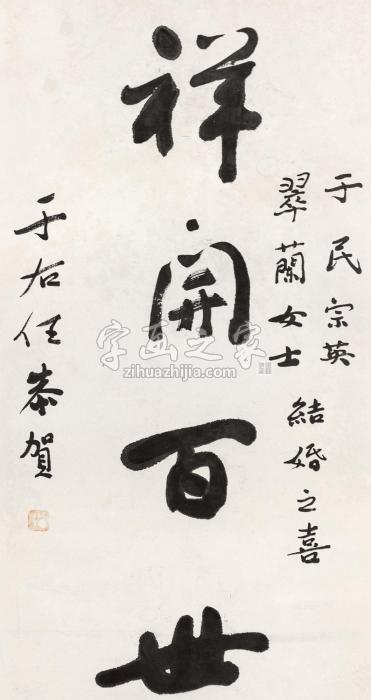 于民宗英
翠蘭女士
結婚之喜
祥開百世
于右任恭賀
字画之家
zihuazhijia.com